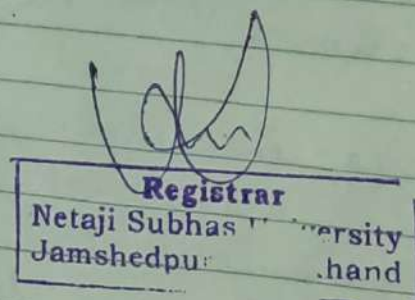 Registrar
Netaji Subhas ersity
Jamshedpu .hand